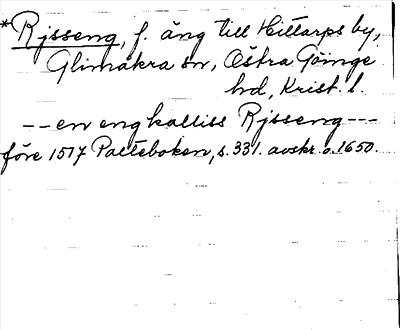 *Rjsseng, f. äng till Hittarps by,
Glimåkra sn, Östra Göinge
hd, Krist. l.
--- en eng kalliss Rjsseng ---
före 1517 Palteboken, s. 331. avskr. o. 1650.